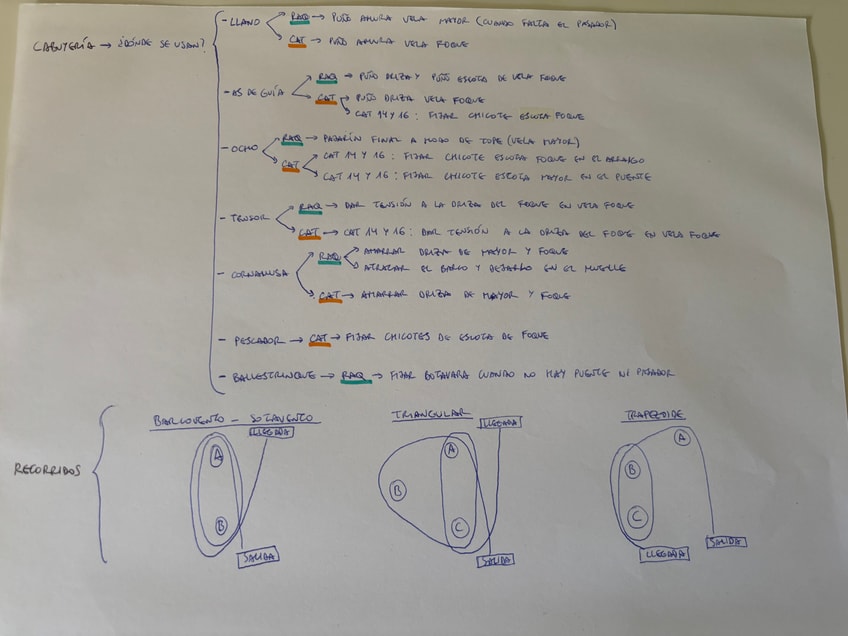 CABUYERÍA → ¿DÓNDE SE USAN?
- LLANO
RAQ → PUÑO AMURA VELA MAYOR (CUANDO FALTA EL PASADOR)
CAT → PUÑO AMURA VELA FOQUE
- AS DE GUÍA
RAQ → PUÑO DRIZA Y PUÑO ESCOTA DE VELA FOQUE
CAT → PUÑO DRIZA VELA FOQUE
CAT 14 Y 16 : FIJAR CHICOTE ESCOTA FOQUE
- OCHO
RAQ → PAJARÍN FINAL A MODO DE TOPE (VELA MAYOR)
CAT → CAT 14 Y 16 : FIJAR CHICOTE ESCOTA FOQUE EN EL ARRAIGO
CAT 14 Y 16 : FIJAR CHICOTE ESCOTA MAYOR EN EL PUENTE
- TENSOR
RAQ → DAR TENSIÓN A LA DRIZA DEL FOQUE EN VELA FOQUE
CAT → CAT 14 Y 16 : DAR TENSIÓN A LA DRIZA DEL FOQUE EN VELA FOQUE
- CORNAMUSA
RAQ → AMARRAR DRIZA DE MAYOR Y FOQUE
ATRACAR EL BARCO Y DEJARLO EN EL MUELLE
CAT → AMARRAR DRIZA DE MAYOR Y FOQUE
- PESCADOR → CAT → FIJAR CHICOTES DE ESCOTA DE FOQUE
- BALLESTRINQUE → RAQ → FIJAR BOTAVARA CUANDO NO HAY PUENTE NI PASADOR
RECORRIDOS
BARLOVENTO - SOTAVENTO
LLEGADA
A
B
SALIDA
TRIANGULAR
LLEGADA
A
B
C
SALIDA
TRAPEZOIDE
A
B
C
LLEGADA
SALIDA